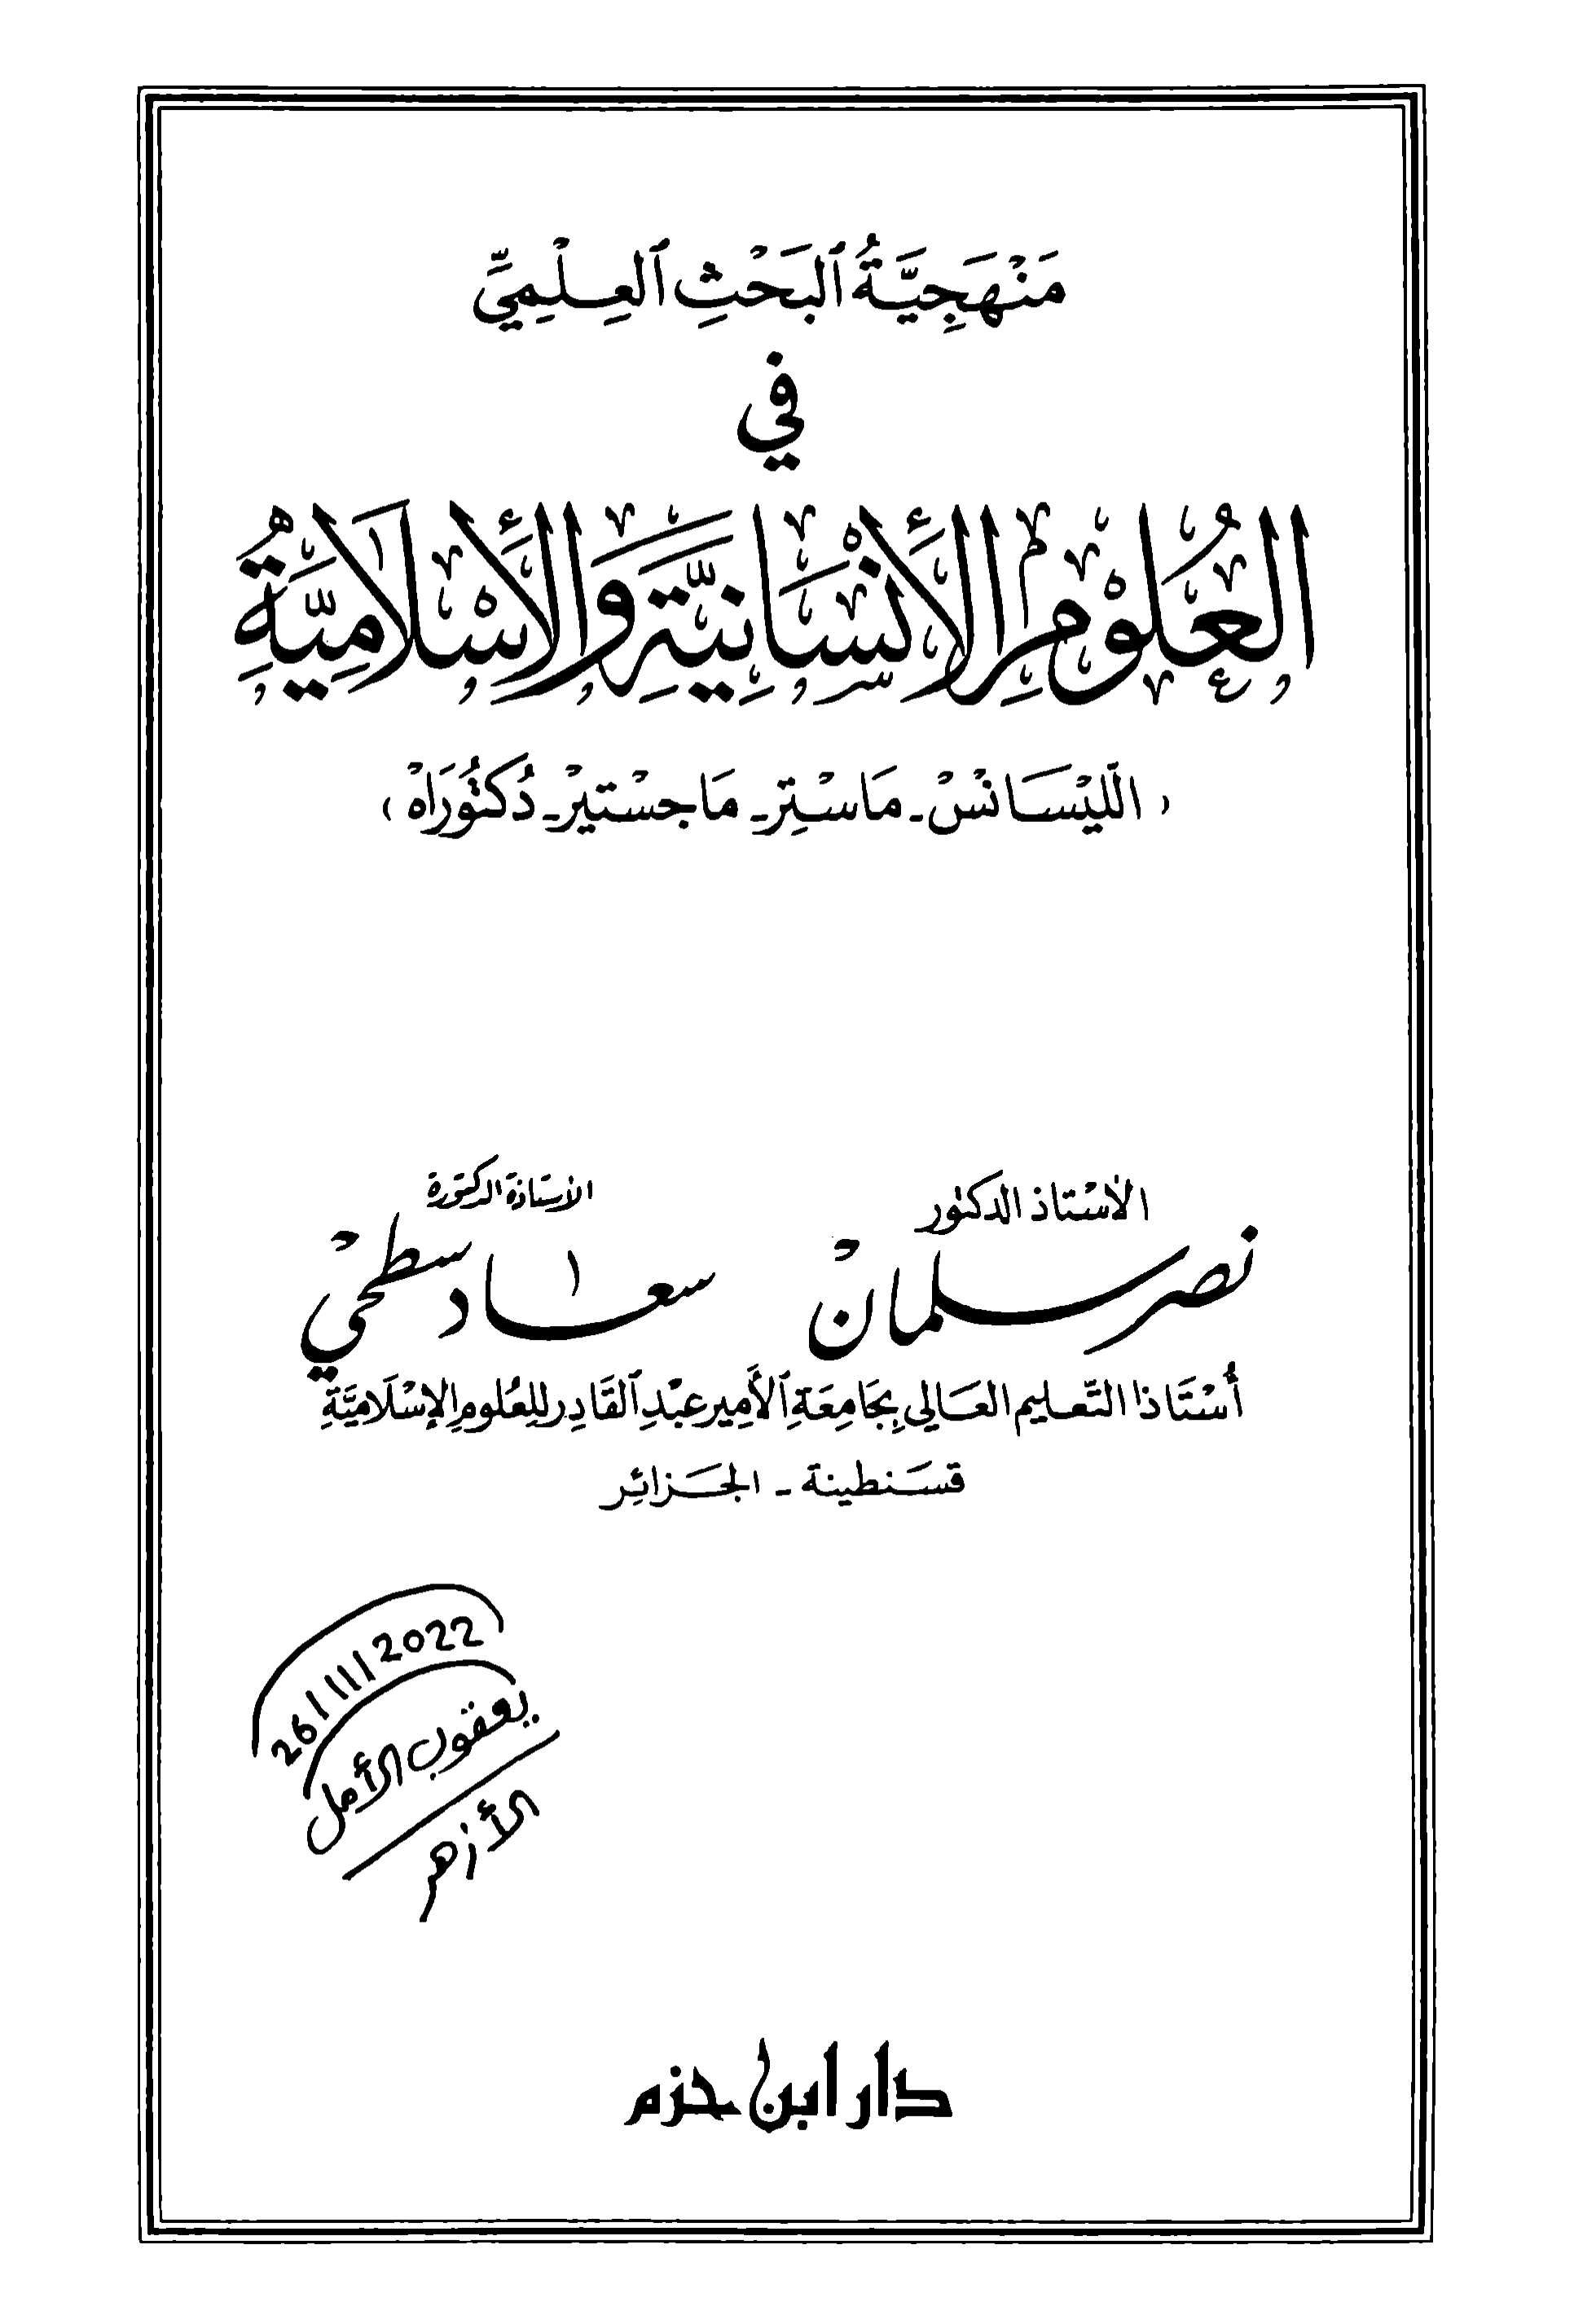 مَنْهَجِيَّةُ ٱلبَحْثِ ٱلعِلْمِيِّ
في
العُلُوْمِ الأَنْسَانِيَّةِ وَالأَسْلَامِيَّةِ
(اللّيْسَانْسْ - مَاسْتِر - مَاجسْتيْر - دُكتُورَاهْ)
الأسْتاذ الدكتور
نصر سلمان
الأستاذة الدكتورة
سعاد سطحي
أُسْتَاذا التّعليم العَالي بِجَامِعَةِ ٱلأَمِير عَبْدِ ٱلقَادِر لِلعُلومِ الإسْلَاميَّةِ
قسَنطينة - الجَزائِر
26/11/2022
يعقوب الأمل
الأزهر
دار ابن حزم